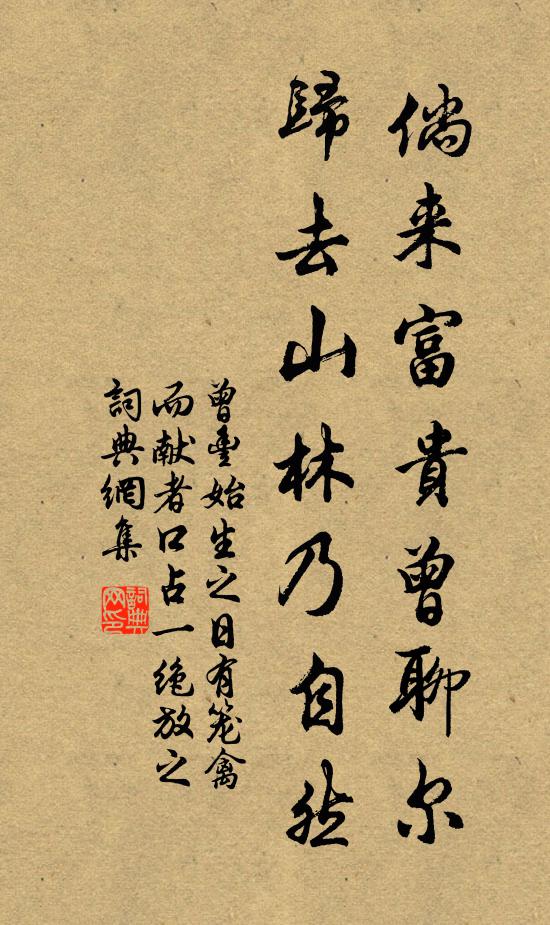 倘来富貴曾聊尔
歸去山林乃自然
曾豊始生之日有笼禽
而献者口占一绝放之
詞典網集
詞典网印